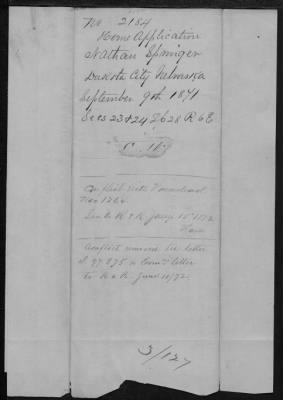 No 2184
Home Application
Nathan Springer
Dakota City Nebraska
September 9th 1871
Secs 23 & 24 T 28 R 6 E
Conflict with Homestead
No 1264
R & R Jany 15th 1872
Conflict removed See letter
97875 & Comrs letter
to R & R June 11/72
3/127